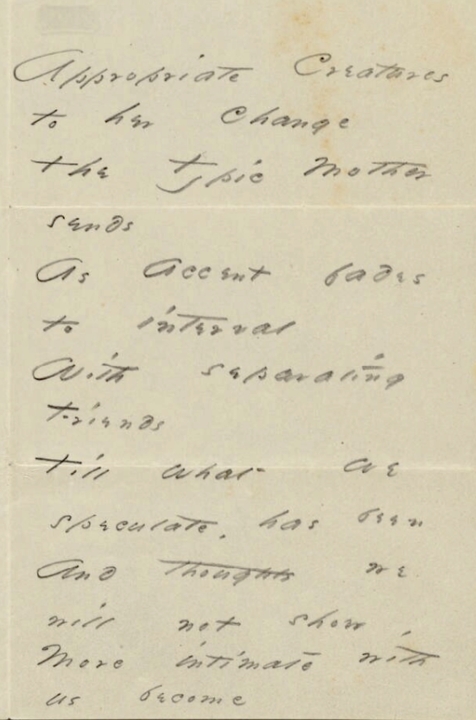 Appropriate Creatures
to her Change
The Typic Mother
sends
As Accent fades
to interval
With separating
Friends
Till what we
speculate, has been
And thoughts we
will not show
More intimate with
us become